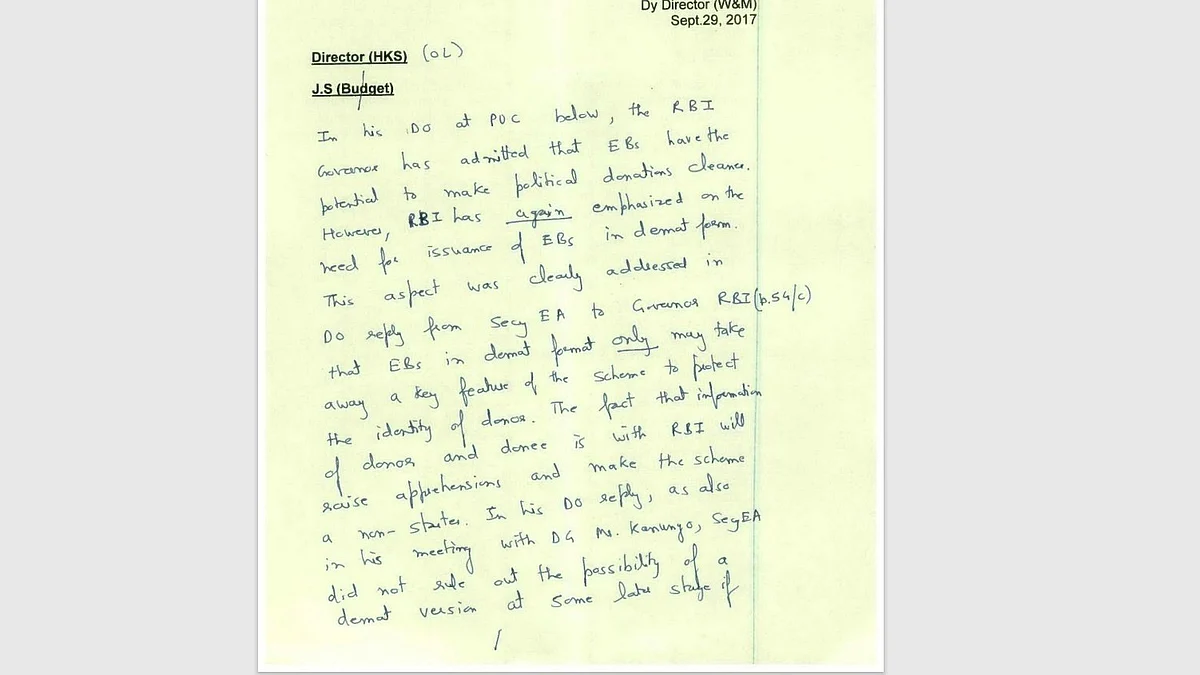 Dy Director (W&M)
Sept.29, 2017
Director (HKS) (OL)
J.S (Budget)
In his DO at PUC below, the RBI
Governor has admitted that EBs have the
potential to make political donations cleaner.
However, RBI has again emphasized on the
need for issuance of EBs in demat form.
This aspect was clearly addressed in
DO reply from Secy EA to Governor RBI (p.54/c)
that EBs in demat format only may take
away a key feature of the scheme to protect
the identity of donor. The fact that information
of donor and donee is with RBI will
raise apprehensions and make the scheme
a non-starter. In his DO reply, as also
in his meeting with DG Mr. Kanungo, Secy EA
did not rule out the possibility of a
demat version at some later stage if